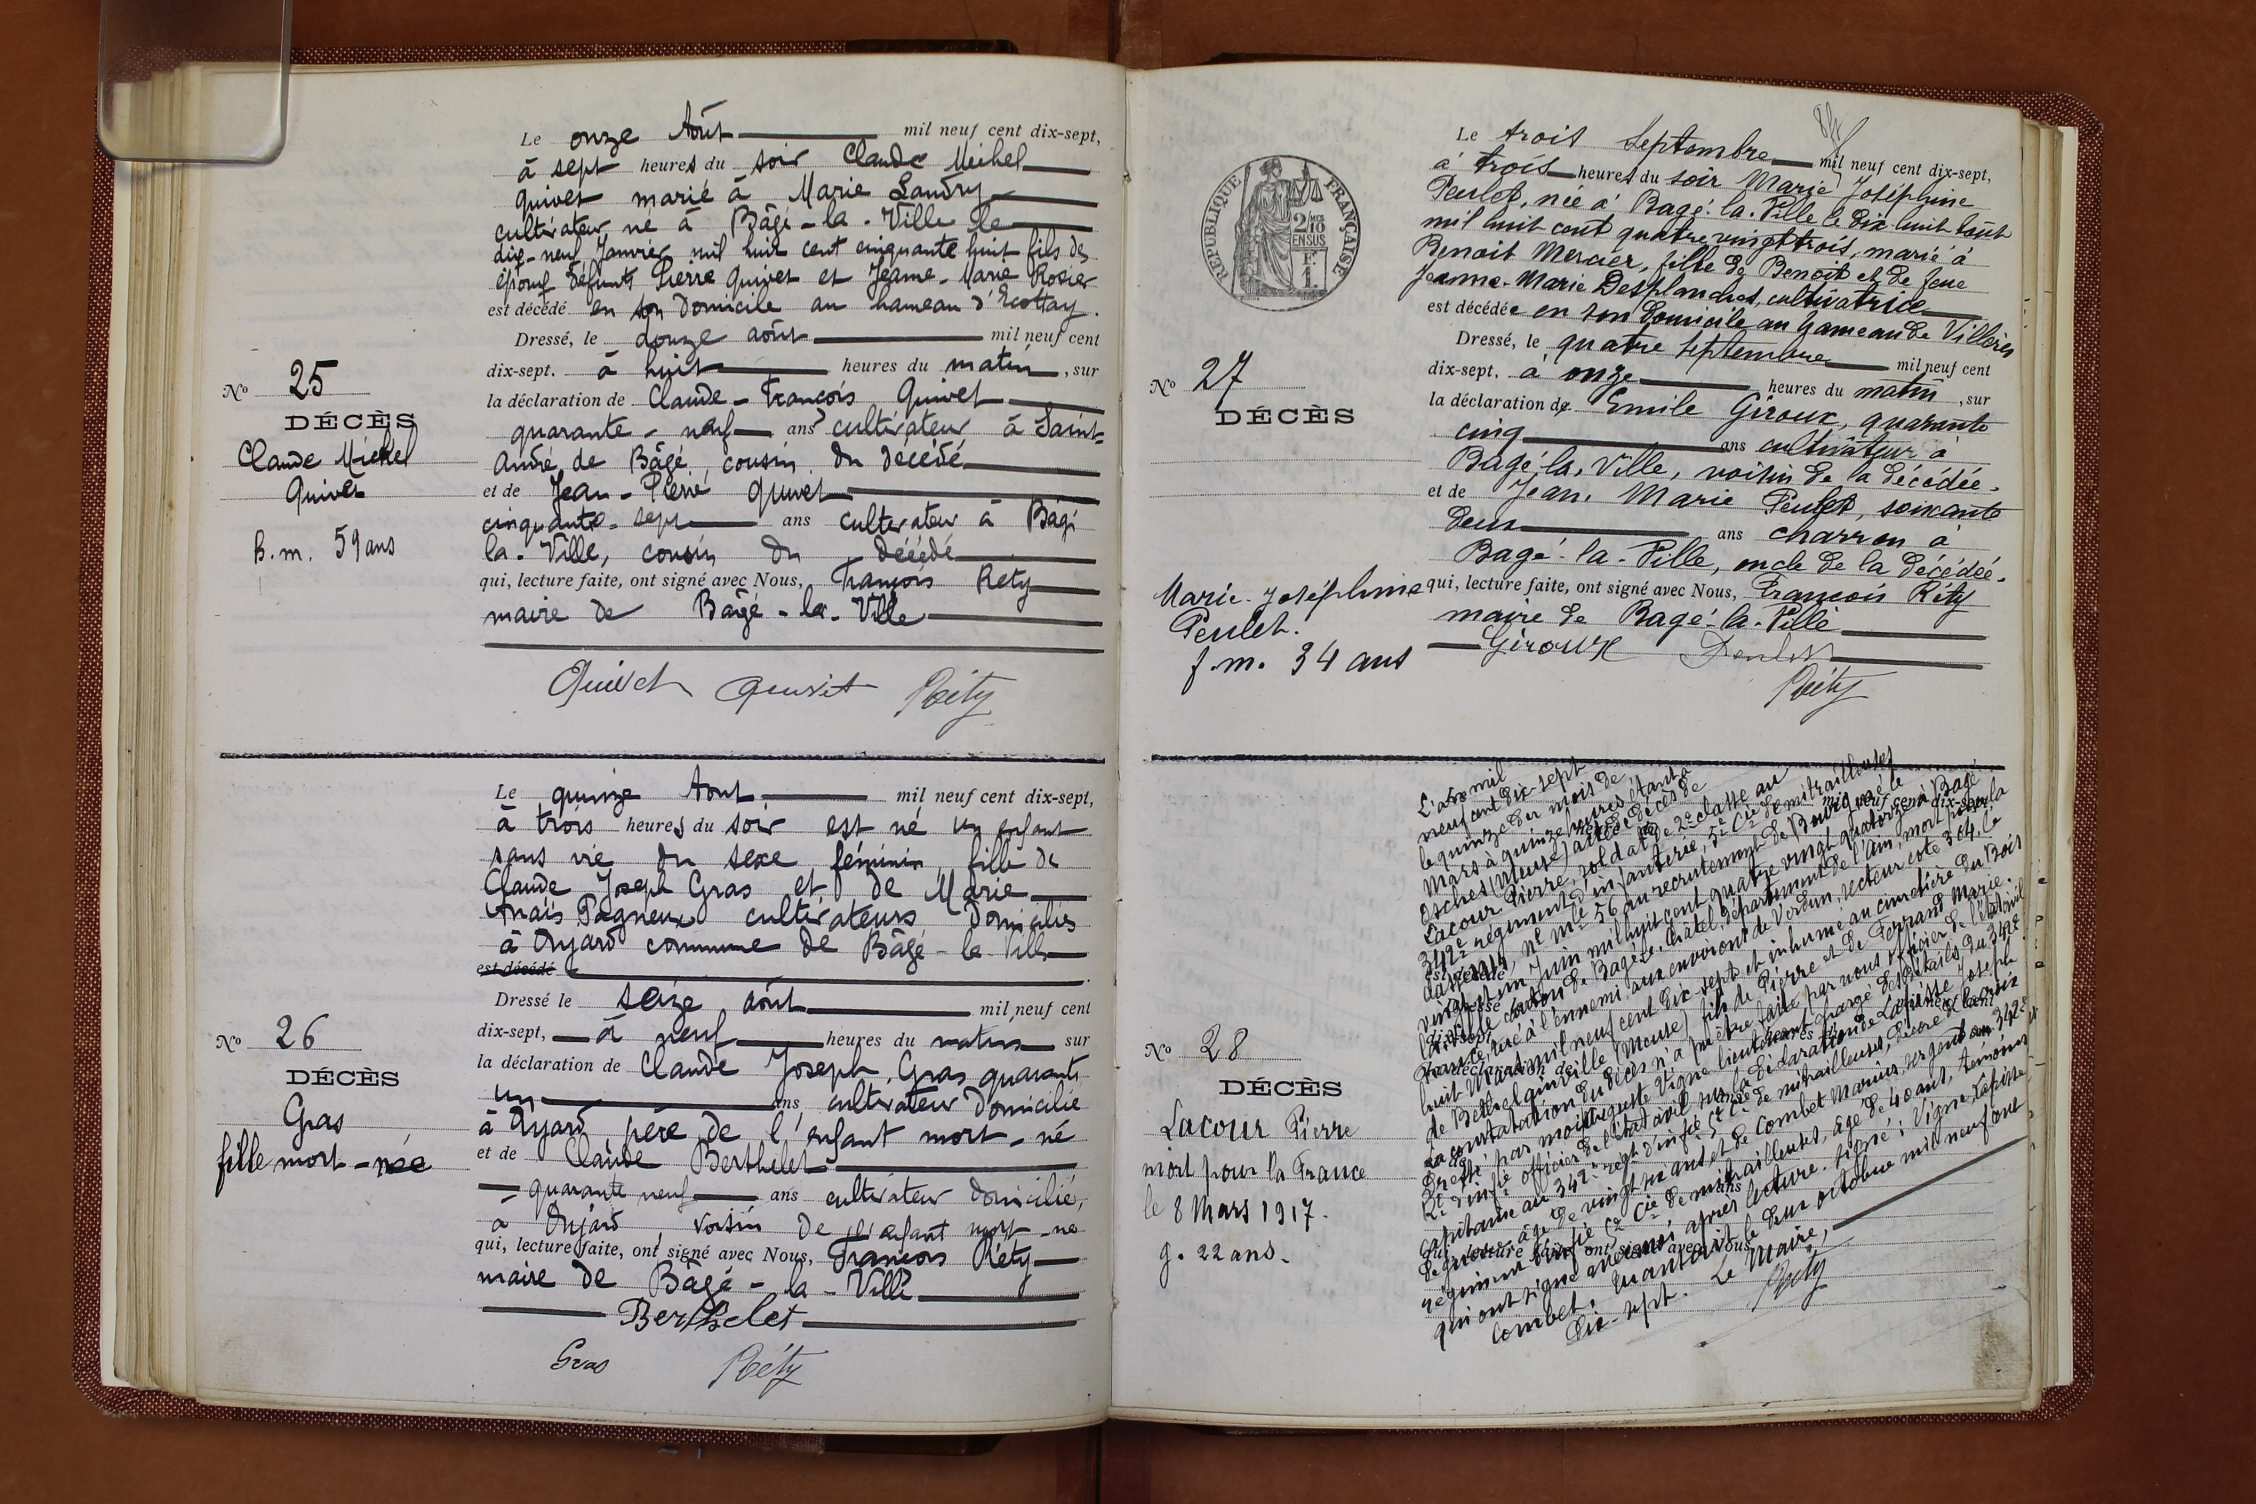 Le onze Août mil neuf cent dix-sept,
à sept heures du soir Claude Michel
Quivet marié à Marie Landry
cultivateur né à Bâgé-la-Ville le
dix-neuf Janvier mil huit cent cinquante huit fils des
époux défunts Pierre Quivet et Jeanne-Marie Rosier
est décédé en son domicile au hameau d'Ecottay.
Dressé, le douze août mil neuf cent
dix-sept. à huit heures du matin, sur
la déclaration de Claude-François Quivet
quarante-neuf ans cultivateur à Saint-
André de Bâgé, cousin du décédé
et de Jean-Pierre Quivet
cinquante-sept ans cultivateur à Bâgé
la-Ville, cousin du décédé
qui, lecture faite, ont signé avec Nous, François Réty
maire de Bâgé-la-Ville
Quivet Quivet Réty
No 25
DÉCÈS
Claude Michel
Quivet
h.m. 59 ans
Le quinze Aout mil neuf cent dix-sept,
à trois heures du soir est né un enfant
sans vie du sexe féminin, fille de
Claude Joseph Gras et de Marie
Anaïs Pagneux cultivateurs domiciliés
à commune de Bâgé-la-Ville
est décédé
Dressé le seize août mil neuf cent
dix-sept, à neuf heures du matin sur
la déclaration de Claude Joseph Gras quarante
un ans, cultivateur domicilié
à père de l'enfant mort-né
et de Claude Berthelet
quarante neuf ans cultivateur domicilié,
à voisin de l'enfant mort-né
qui, lecture faite, ont signé avec Nous, François Réty
maire de Bâgé-la-Ville
Berthelet
Gras Réty
No 26
DÉCÈS
Gras
fille mort-née
RÉPUBLIQUE FRANÇAISE
2/10 EN SUS
Le trois Septembre mil neuf cent dix-sept,
à trois heures du soir Marie Joséphine
Peulet, née à Bagé-la-Ville le dix-huit août
mil huit cent quatre vingt trois, marié à
Benoit Mercier, fille de Benoit et de feue
Jeanne-Marie Desplanches, cultivatrice
est décédée en son domicile au hameau de
Dressé, le quatre Septembre mil neuf cent
dix-sept, à onze heures du matin, sur
la déclaration de Emile Giroux, quarante
cinq ans cultivateur à
Bagé-la-Ville, voisin de la décédée.
et de Jean Marie Peulet, soixante
deux ans charron à
Bagé-la-Ville, oncle de la décédée.
qui, lecture faite, ont signé avec Nous, François Réty
maire de Bagé-la-Ville
Giroux Peulet
Réty
No 27
DÉCÈS
Marie-Joséphine
Peulet.
f.m. 34 ans
L'an mil
neuf cent dix-sept
le quinze du mois de
Mars à quinze heures étant à
Osches (Meuse) acte de décès de
Lacour Pierre, soldat de 2e classe au
342e régiment d'infanterie, 5e Cie de mitrailleuses
classe 1914, No Mle 56 au recrutement de Bourg né le
vingt un Juin mil huit cent quatre vingt quatorze à Bagé
la Ville canton de Bagé-le-Châtel, département de l'Ain, mort pour la
France, tué à l'ennemi aux environs de Verdun, secteur cote 304, le
huit Mars mil neuf cent dix sept et inhumé au cimetière du Bois
de Bethelainville (Meuse) fils de Pierre et de Ferrand Marie.
La constatation du décès n'a pu être faite par nous officier de l'état civil
Dressé par moi Auguste Vigne lieutenant chargé des détails, du 342e
Rt d'infie officier de l'état civil sur la déclaration de Lapisse Joseph
capitaine au 342e regt d'infie 5e Cie de mitrailleuses, décoré de la croix
de guerre âgé de vingt six ans et de Combet Marius, sergent au 342e
régiment d'infie 5e Cie de mitrailleuses, âgé de 40 ans, témoins
qui ont signé avec moi après lecture. signé: Vigne, Lapisse
Combet. transcrit le deux octobre mil neuf cent
dix-sept. Le Maire,
Réty
No 28
DÉCÈS
Lacour Pierre
mort pour la France
le 8 Mars 1917.
g. 22 ans.